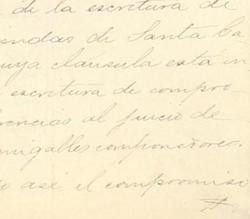 de la escritura de
endas de Santa Ca
uya clausula esta in
escritura de compro
rencias al juicio de
migables componedores.
o asi el compromiso